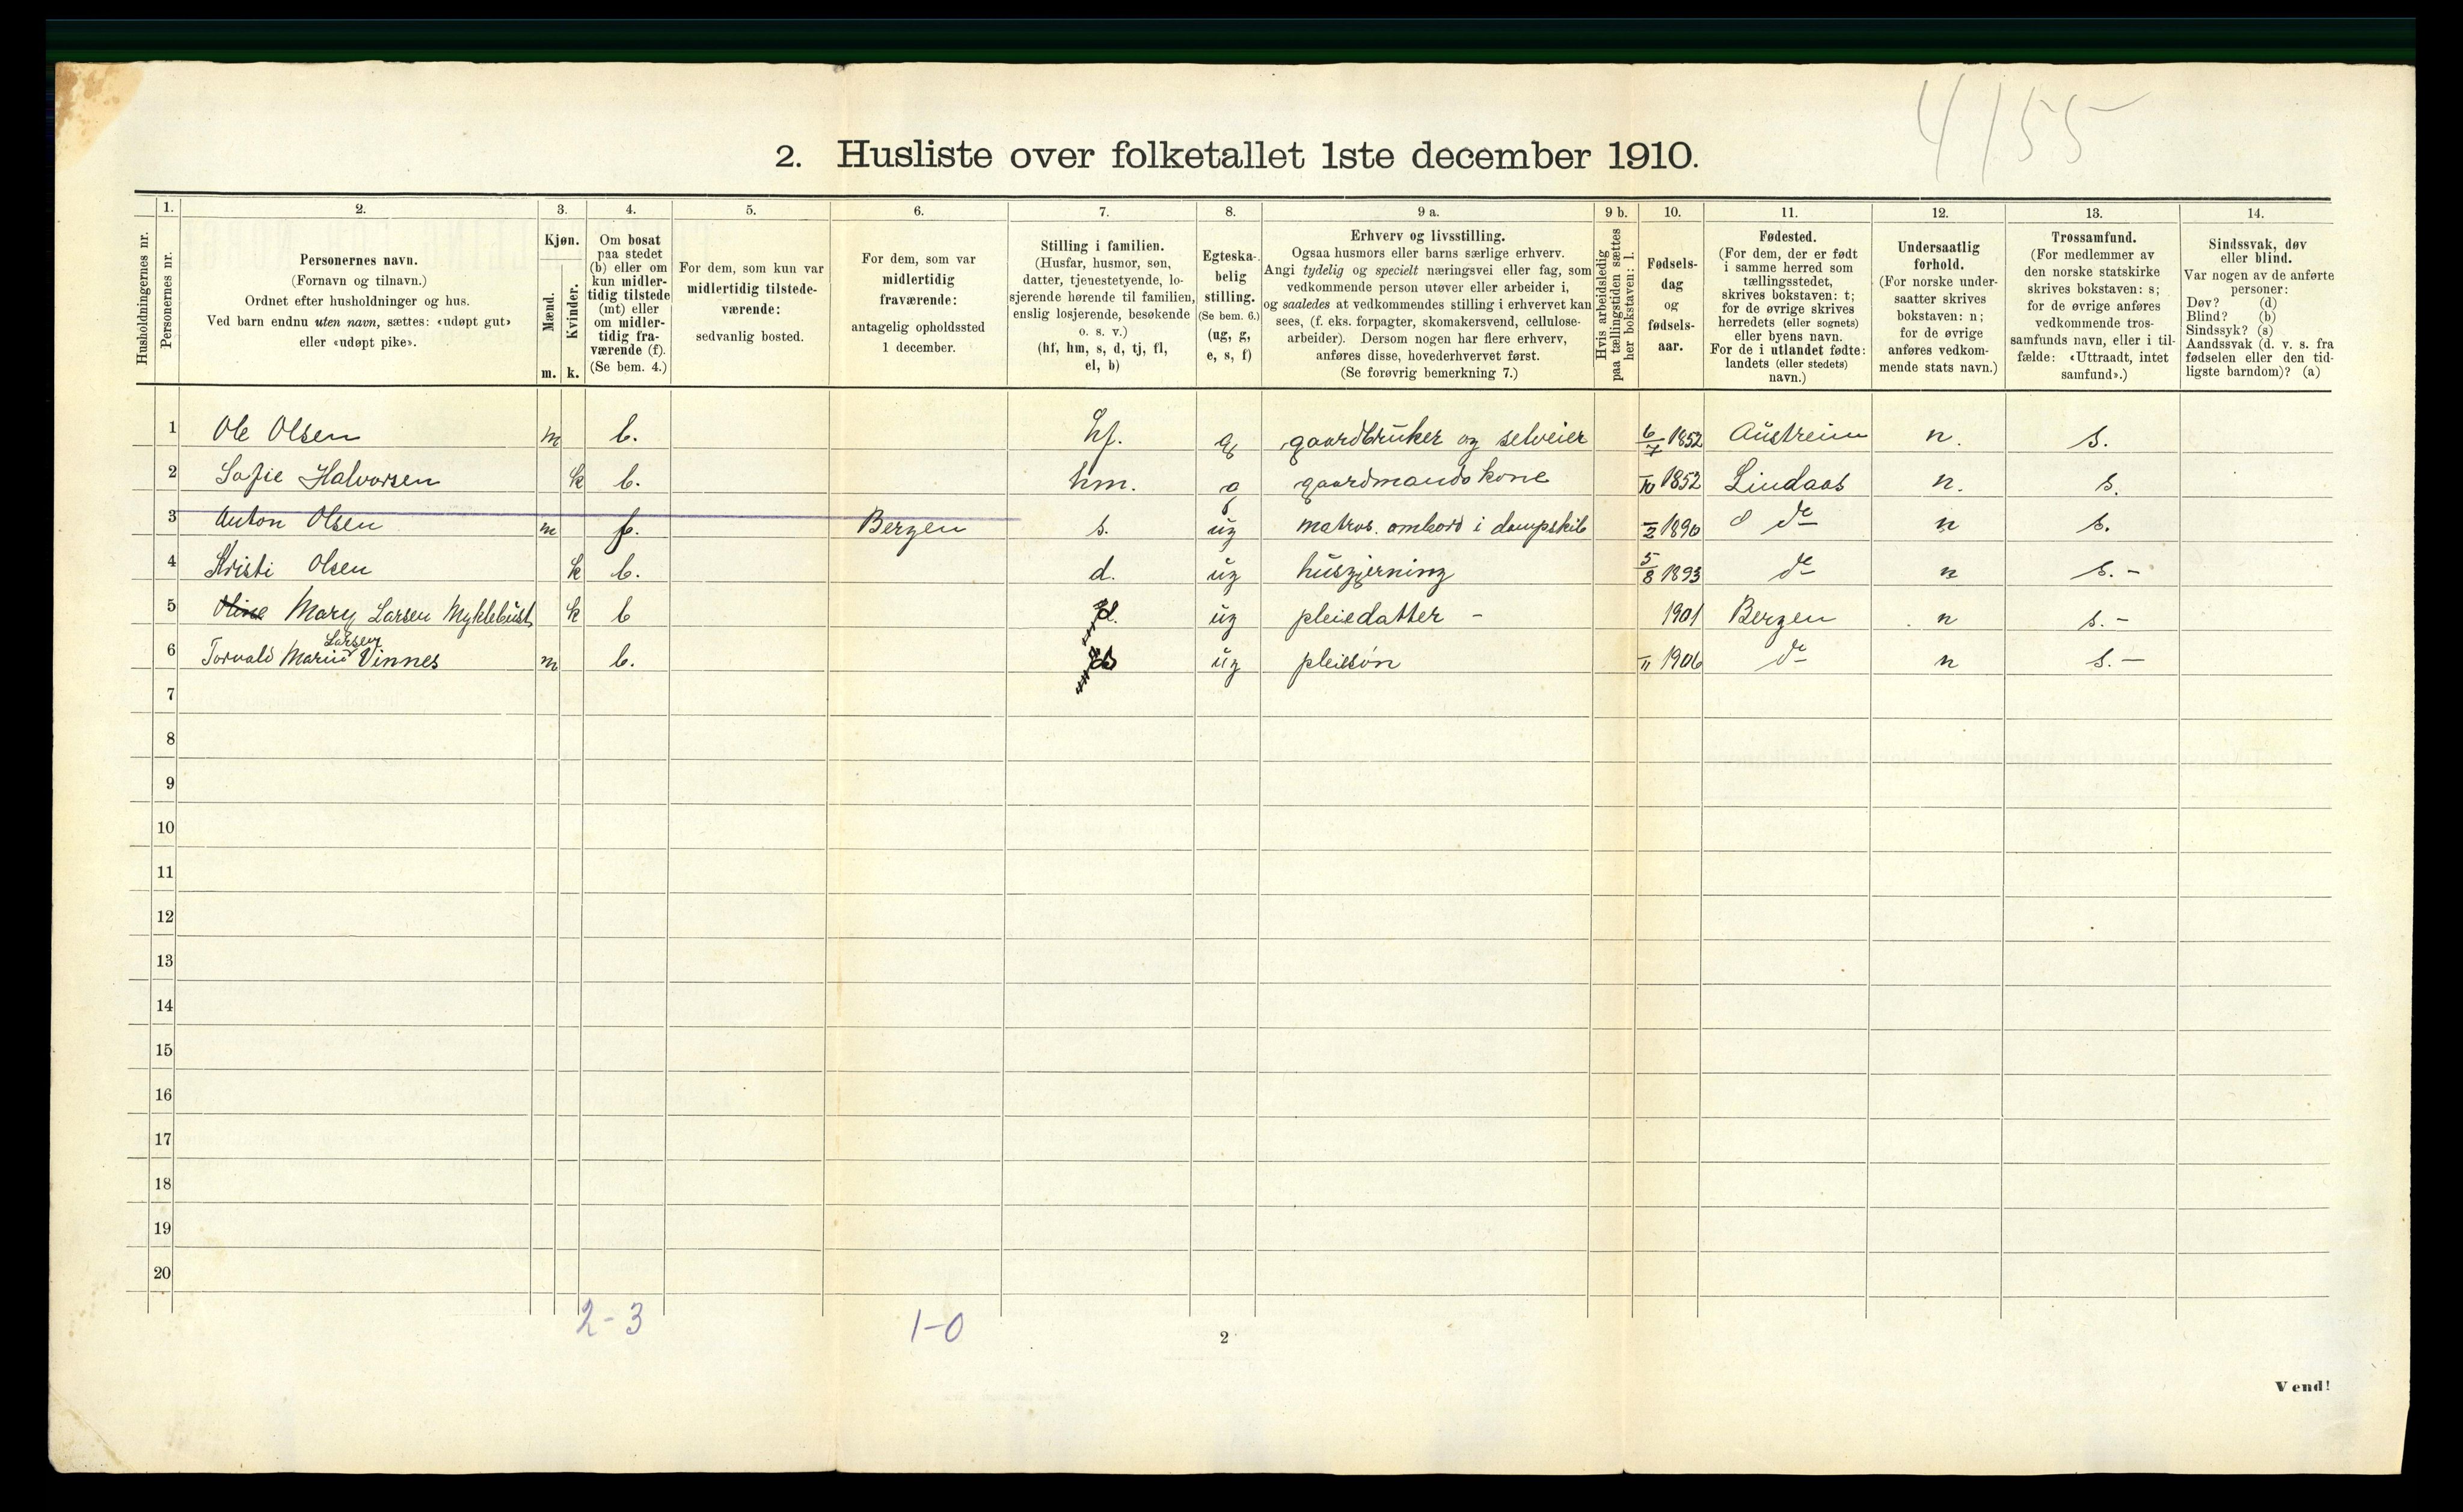 4/155
2. Husliste over folketallet 1ste december 1910.
Husholdningernes nr.
1.
Personernes nr.
2.
Personernes navn.
(Fornavn og tilnavn.)
Ordnet efter husholdninger og hus.
Ved barn endnu uten navn, sættes: «udøpt gut»
eller «udøpt pike».
3.
Kjøn.
Mænd.
Kvinder.
m. k.
4.
Om bosat
paa stedet
(b) eller om
kun midler-
tidig tilstede
(mt) eller
om midler-
tidig fra-
værende (f).
(Se bem. 4.)
5.
For dem, som kun var
midlertidig tilstede-
værende:
sedvanlig bosted.
6.
For dem, som var
midlertidig
fraværende:
antagelig opholdssted
1 december.
7.
Stilling i familien.
(Husfar, husmor, søn,
datter, tjenestetyende, lo-
sjerende hørende til familien,
enslig losjerende, besøkende
o. s. v.)
(hf, hm, s, d, tj, fl,
el, b)
8.
Egteska-
belig
stilling.
(Se bem. 6.)
(ug, g,
e, s, f)
9 a.
Erhverv og livsstilling.
Ogsaa husmors eller barns særlige erhverv.
Angi tydelig og specielt næringsvei eller fag, som
vedkommende person utøver eller arbeider i,
og saaledes at vedkommendes stilling i erhvervet kan
sees, (f. eks. forpagter, skomakersvend, cellulose-
arbeider). Dersom nogen har flere erhverv,
anføres disse, hovederhvervet først.
(Se forøvrig bemerkning 7.)
9 b.
Hvis arbeidsledig
paa tællingstiden sættes
her bokstaven: l.
10.
Fødsels-
dag
og
fødsels-
aar.
11.
Fødested.
(For dem, der er født
i samme herred som
tællingsstedet,
skrives bokstaven: t;
for de øvrige skrives
herredets (eller sognets)
eller byens navn.
For de i utlandet fødte:
landets (eller stedets)
navn.)
12.
Undersaatlig
forhold.
(For norske under-
saatter skrives
bokstaven: n;
for de øvrige
anføres vedkom-
mende stats navn.)
13.
Trossamfund.
(For medlemmer av
den norske statskirke
skrives bokstaven: s;
for de øvrige anføres
vedkommende tros-
samfunds navn, eller i til-
fælde: «Uttraadt, intet
samfund».)
14.
Sindssvak, døv
eller blind.
Var nogen av de anførte
personer:
Døv? (d)
Blind? (b)
Sindssyk? (s)
Aandssvak (d. v. s. fra
fødselen eller den tid-
ligste barndom)? (a)
1 Ole Olsen m b. hf. g gaardbruker og selveier 6/7 1852 Austreim n. s.
2 Sofie Halvorsen k b. hm. g gaardmands kone /10 1852 Lindaas n. s.
3 Anton Olsen m f. Bergen s. ug matros ombord i dampskib /2 1890 de n s.
4 Kristi Olsen k b. d. ug husgjerning 5/8 1893 de n s. -
5 Oline Mary Larsen Myklebust k b d. ug pleiedatter - 1901 Bergen n s. -
Larsen
6 Torvald Marius Vinnes m b. ug pleiesøn /11 1906 de n s. -
7
8
9
10
11
12
13
14
15
16
17
18
19
20
2-3 1-0
2
Vend!